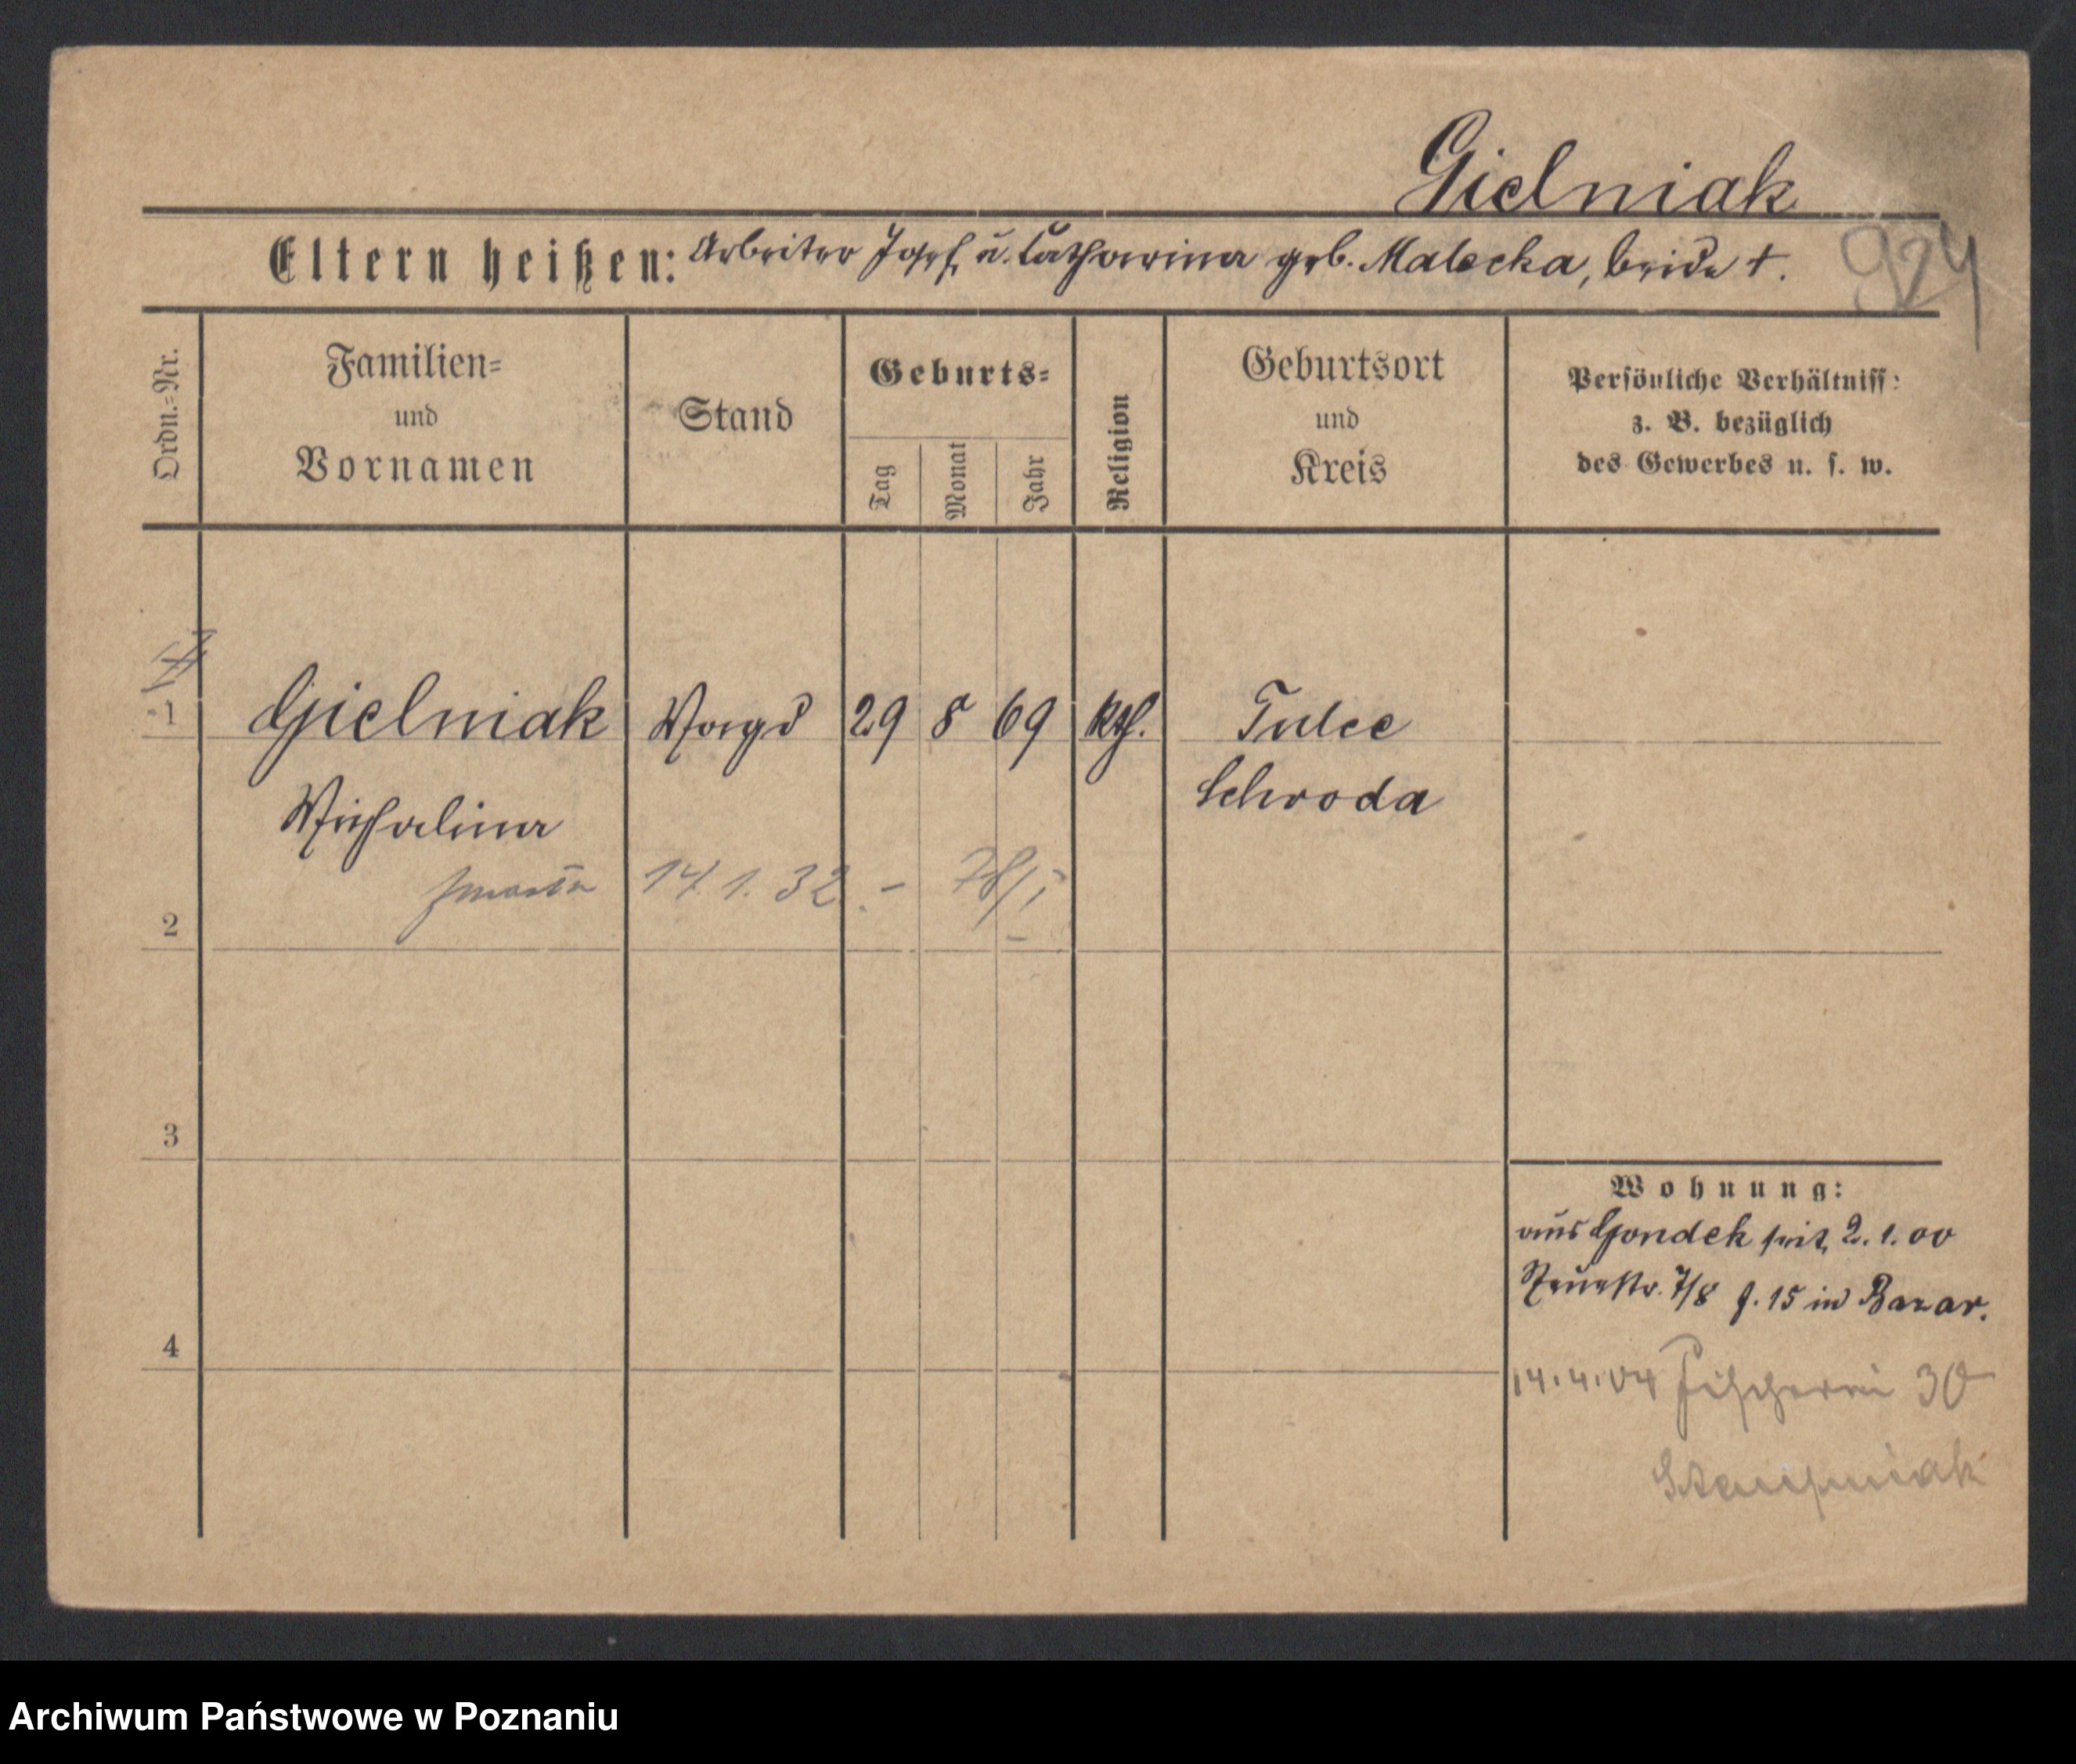 Gielniak
Eltern heißen: Arbeiter Josef u. Catharina geb. Malecka, beide †.
924
Ordn.-Nr.
Familien- und Vornamen
Stand
Geburts-
Tag
Monat
Jahr
Religion
Geburtsort und Kreis
Persönliche Verhältniss:
z. B. bezüglich
des Gewerbes u. s. w.
1 Gielniak Magd 29 8 69 kth. Tulce
Michalina Schroda
zmarła 14.1.32. – 78/I
2
3
4
Wohnung:
aus Gondek seit 2.1.00
Neuestr. 7/8 f. 15 in Bazar.
14.4.04 Fischerei 30
Archiwum Państwowe w Poznaniu